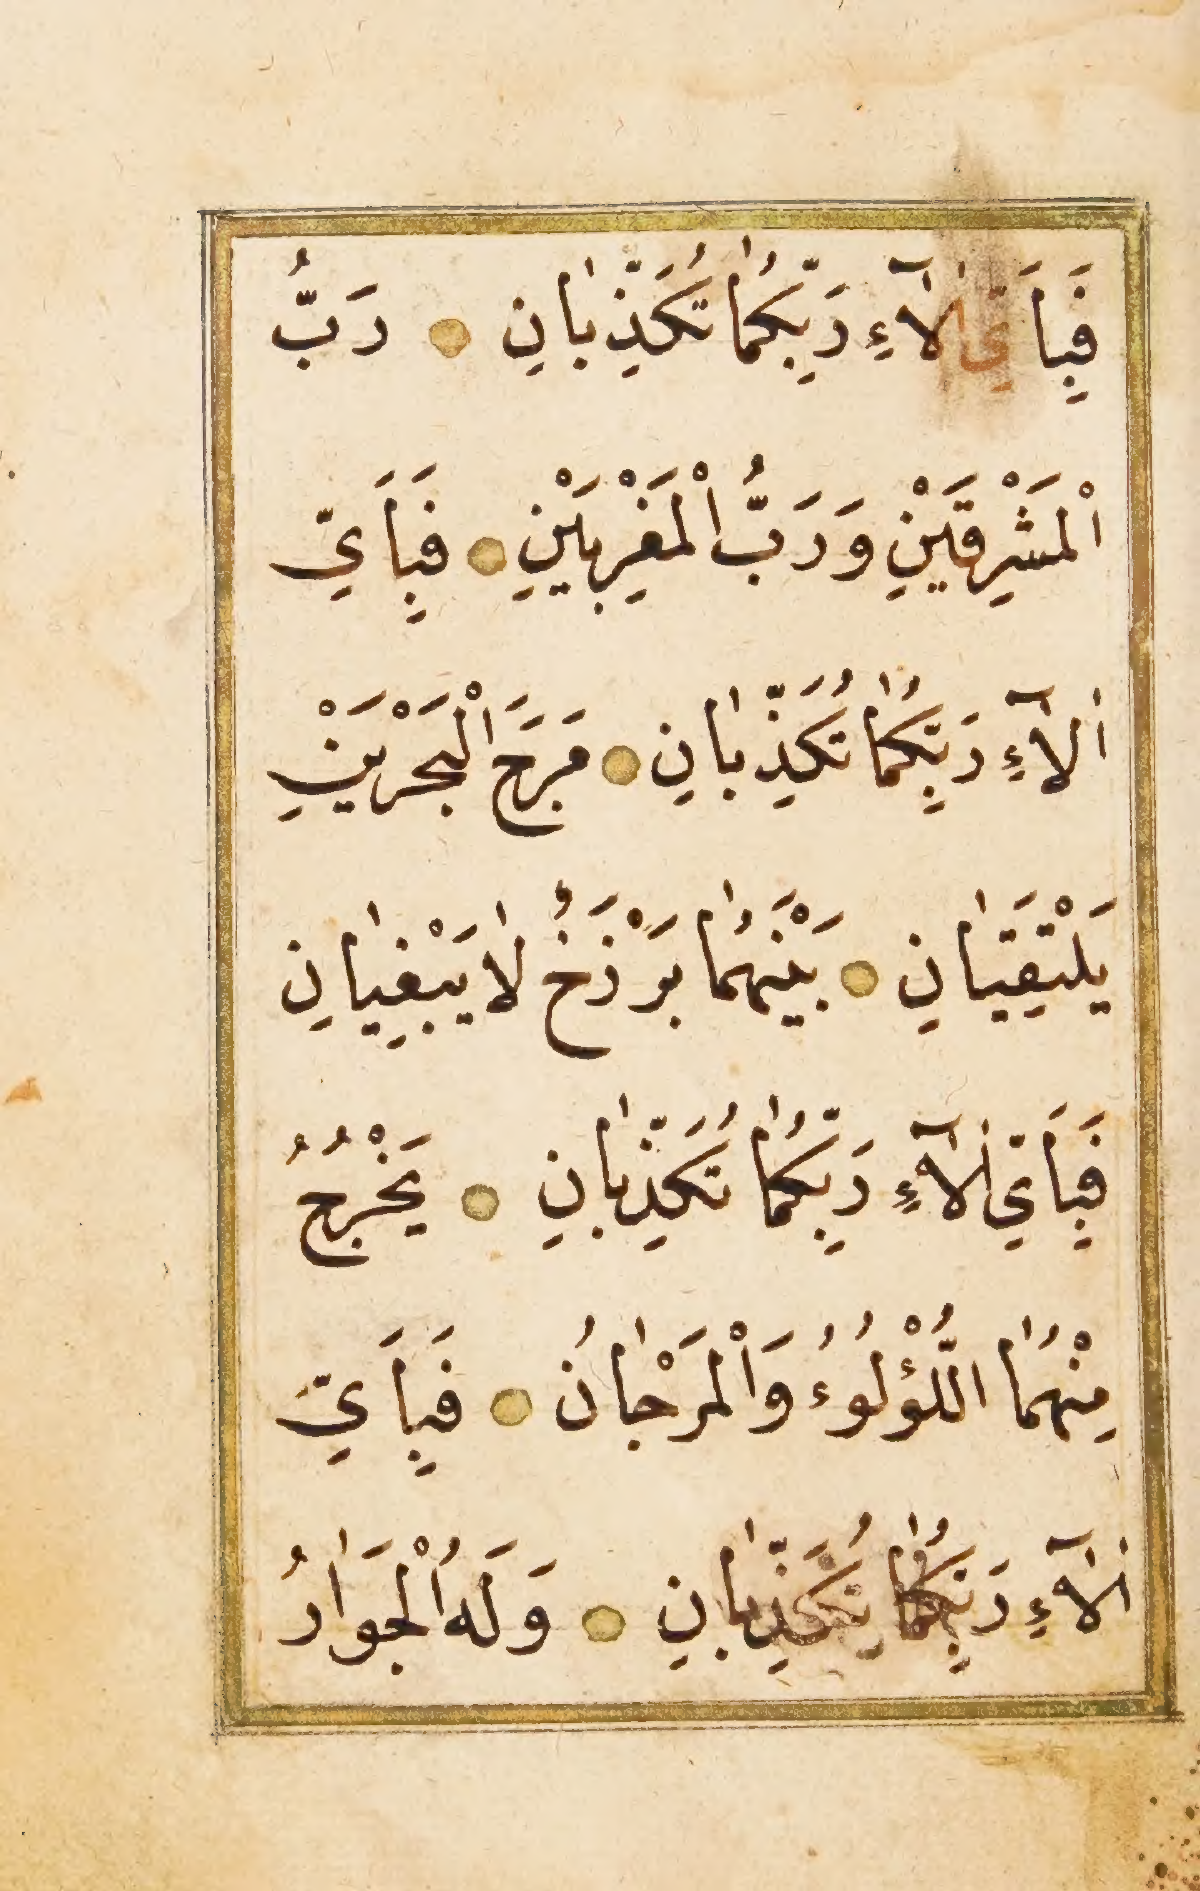 فَبِاَيِّ اٰلَآءِ رَبِّكُمٰا تُكَذِّبٰانِ رَبُّ
اْلمَشْرِقَيْنِ وَرَبُّ اْلمَغْرِبَيْنِ فَبِاَيِّ
اٰلآءِ رَبِّكُمٰا تُكَذِّبٰانِ مَرَجَ اْلبَحْرَيْنِ
يَلْتَقِيٰانِ بَيْنَهُمٰا بَرْزَخٌ لٰا يَبْغِيٰانِ
فَبِاَيِّ اٰلآءِ رَبِّكُمٰا تُكَذِّبٰانِ يَخْرُجُ
مِنْهُمٰا اللُّؤْلُوُءُ وَاْلمَرْجٰانُ فَبِاَيِّ
اٰلآءِ رَبِّكُمٰا تُكَذِّبٰانِ وَلَهُ اْلجَوَارُ